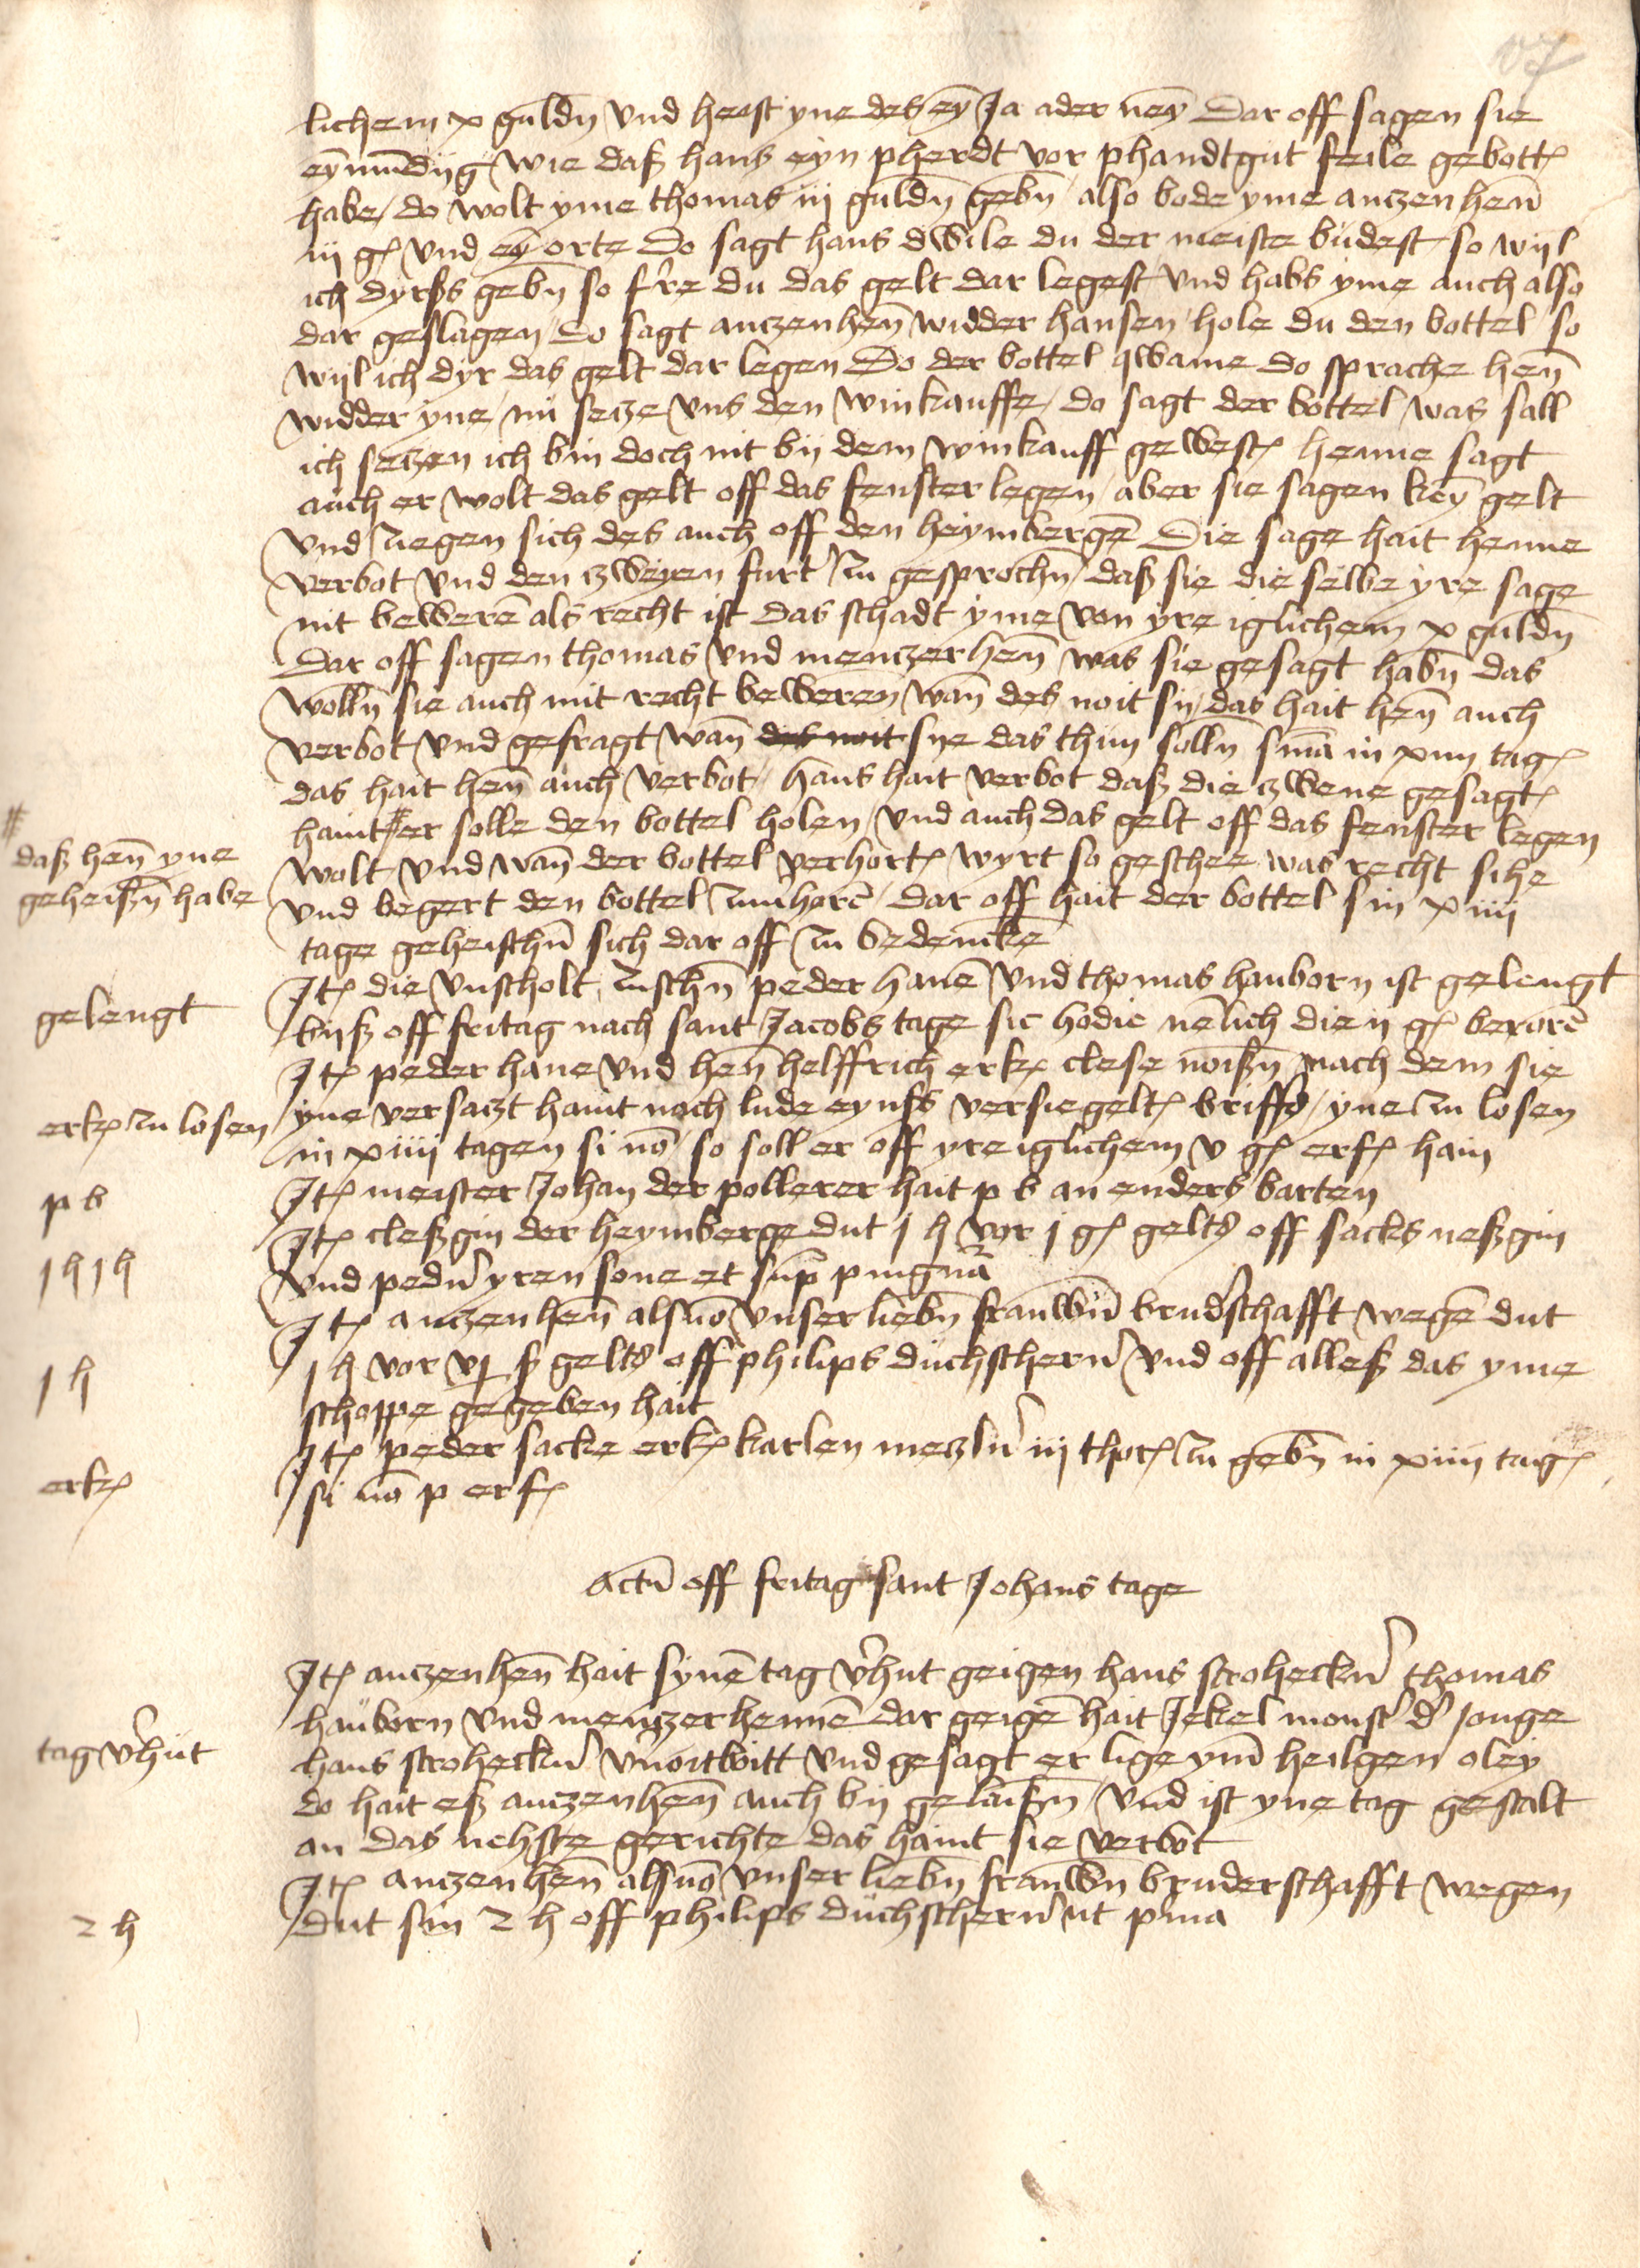 lichem x guldn̄ vnd heist yne des eȳ Ja ader neȳ Dar off sagen sie
eȳmūdiig wie daß hans eyn pherdt vor phandtgut feile gebott
habe / do wolt yme thomas iij guldn̄ gebn̄ / also bode yme anczenhen̄
iij g vnd eȳ orte Do sagt hans dwile du der meiste budest so wijl
ich dyrßs gebn̄ so fˀre du das gelt dar legest vnd habs yme auch also
dar geslagen / Do sagt anczenhen̄ widder hansen / hole du den bottel so
wijl ich dyr das gelt dar legen Do der bottel qwame do sprache hen̄
widder yne / nu secze vns den winkauffe / do sagt der bottel was sall
ich seczen ich bin doch nit bij dem winkauff gewest henne sagt
auch er wolt das gelt off das fenster legen / aber sie sagen keȳ gelt
vnd ziegen sich des auch off den heymbergē Die sage hait henne
verbot vnd den zweyen furt zu gesprochn̄ / daß sie die selbe yre sage
nit bewerē als recht ist das schadt yme von yre iglichem x guldn̄
Dar off sagen thomas vnd menczerhen̄ was sie gesagt habn̄ das
wolln̄ sie auch mit recht beweren / wan̄ des noit sij / das hait hen̄ auch
verbot vnd gefragt wan̄ des noit sye das thun solln̄ snīa in xiiii tag
das hait hen̄ auch verbot / hans hait verbot daß die zwene gesagt
haint # er solle den bottel holen / vnd auch das gelt off das fenster legen
# daß hen̄ yne
geheißn̄ habe
wolt vnd wan̄ der bottel verhort wyrt so geschee was recht sihe
vnd begert den bottel zuuˀhorē / dar off hait der bottel sin xiiii
tage geheischn̄ sich dar off zu bedencke
gelengt
Jt die vnscholt zuschn̄ peder hanē vnd thomas hauborn ist gelengt
bijß off fritag nach sant Jacobs tage sic hodie nēlich die ij g berorē
Jt peder hane vnd hen̄ helffrich erk clese noißn̄ nach dem sie
erk zu losen
yne versaczt haint nach lude eynßs versiegelt briffs / yne zu losen
in xiiii tagen si nō / so soll er off yre iglichem v g erf hain
p b
Jt meister Johan der pollerer hait p b an enders barten
1 h 1 h
Jt cleßgin der heymberge dut 1 h vor 1 g gelts off sacks neßgin
vnd pedˀn yren sone et sup̄ pingnˀa
Jt anczenhen̄ als vō vnser liebn̄ frauwn̄ brudˀschafft wegē dut
1 h
1 h vor vj ß gelts off philips duchscherˀn vnd off alleß das yme
schoppe gegeben hait
erk
Jt peder sacke erk karlen meczlˀn iij thor zu gebn̄ in xiiii tag
si nō p erf
Actū off fritag sant Johans tage
Jt anczenhen̄ hait synē tag vˀhut geigen hans stroheckˀn thomas
hauborn vnd menczerhennē dar geigē hait Jekel monstˀ dˀ Jonge
tag vˀhut
hans stroheckˀn vˀnortbott vnd gesagt er lige ym̄ heilgen oleij
do hait eß anczenhen̄ auch bij gelaißn̄ / vnd ist yne tag gestalt
an das nehste gerichte / das haint sie verbot
Jt anczenhen̄ als vō vnser liebn̄ frauwn̄ bruderschafft wegen
2 h
dut sin 2 h off philips duchscherˀn ut pˀma